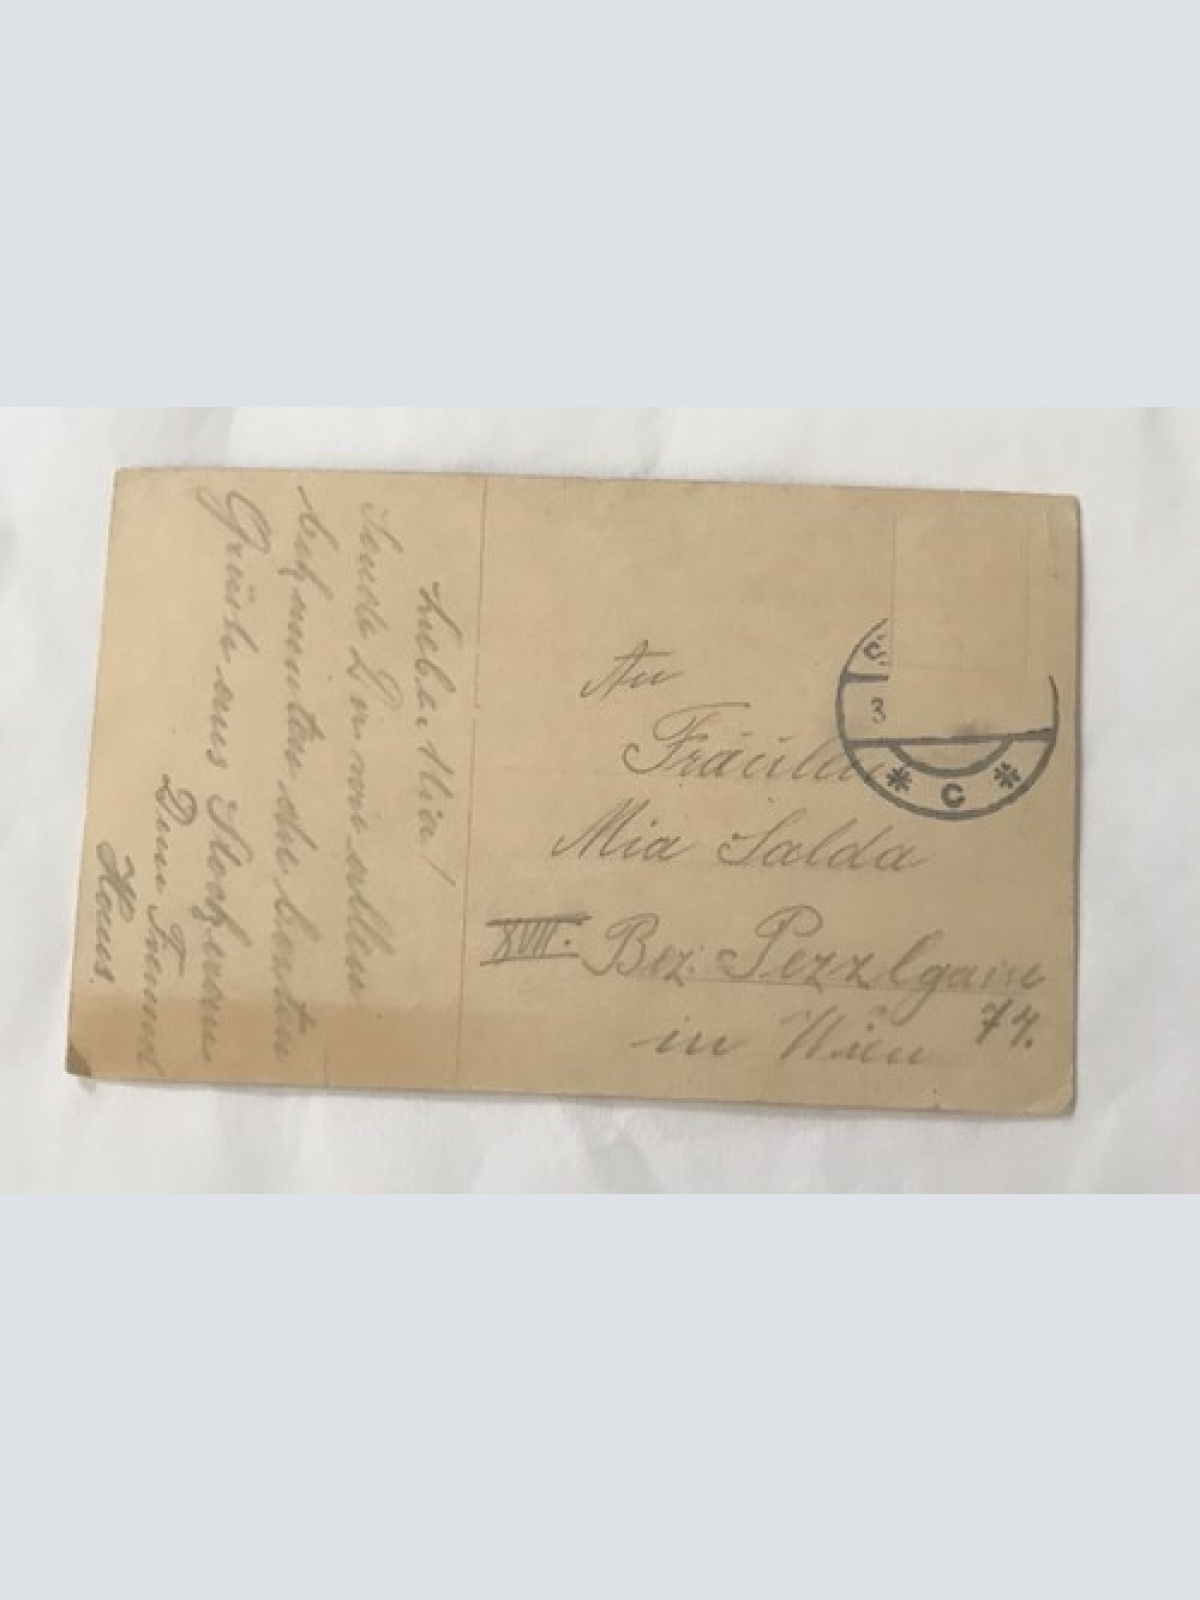 Liebe Mia!
Sende Dir wie allen
Bekannten die besten
Grüße aus
Dein Freund
Hans.
An
Fräulein
Mia Salda
XVII. Bez. Pezzlgasse
in Wien 74.
Č.
3
* C *